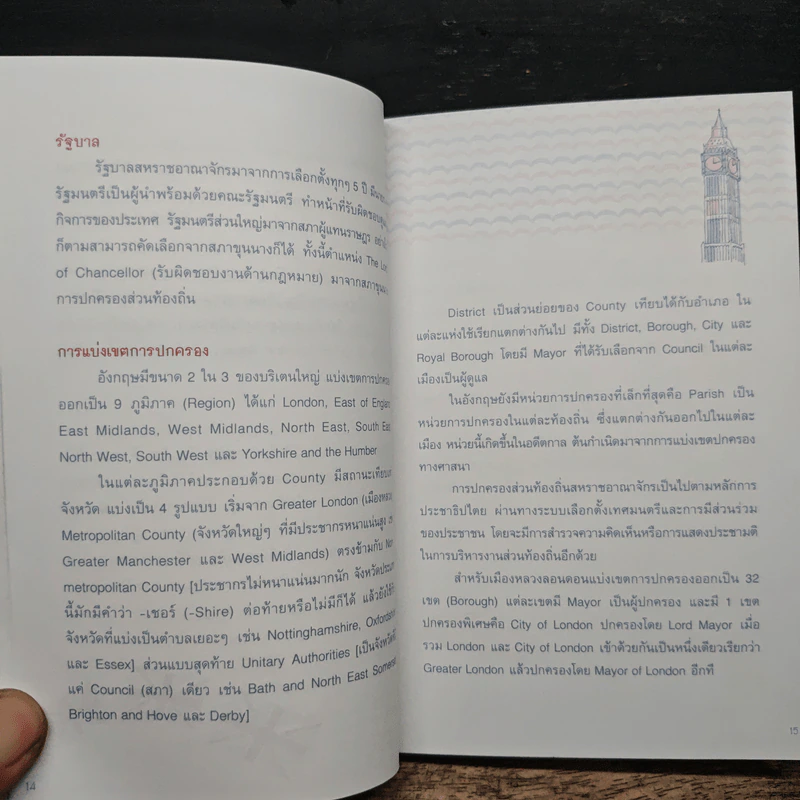 รัฐบาล
รัฐบาลสหราชอาณาจักรมาจากการเลือกตั้งทุกๆ 5 ปี
รัฐมนตรีเป็นผู้นำพร้อมด้วยคณะรัฐมนตรี ทำหน้าที่รับผิดชอบ
กิจการของประเทศ รัฐมนตรีส่วนใหญ่มาจากสภาผู้แทนราษฎร
ก็ตามสามารถคัดเลือกจากสภาขุนนางก็ได้ ทั้งนี้ตำแหน่ง The
of Chancellor (รับผิดชอบงานด้านกฎหมาย) มาจากสภา
การปกครองส่วนท้องถิ่น
การแบ่งเขตการปกครอง
อังกฤษมีขนาด 2 ใน 3 ของบริเตนใหญ่ แบ่งเขตการ
ออกเป็น 9 ภูมิภาค (Region) ได้แก่ London, East of
East Midlands, West Midlands, North East, South East
North West, South West และ Yorkshire and the Humber
ในแต่ละภูมิภาคประกอบด้วย County มีสถานะ
จังหวัด แบ่งเป็น 4 รูปแบบ เริ่มจาก Greater London
Metropolitan County (จังหวัดใหญ่ๆ ที่มีประชากรหนาแน่นสูง
Greater Manchester และ West Midlands) ตรงข้ามกับ
metropolitan County [ประชากรไม่หนาแน่นมากนัก
นี้มักมีคำว่า -เชอร์ (-Shire) ต่อท้ายหรือไม่มีก็ได้
จังหวัดที่แบ่งเป็นตำบลเยอะๆ เช่น Nottinghamshire,
และ Essex] ส่วนแบบสุดท้าย Unitary Authorities
แค่ Council (สภา) เดียว เช่น Bath and North East
Brighton and Hove และ Derby]
14
District เป็นส่วนย่อยของ County เทียบได้กับอำเภอ ใน
แต่ละแห่งใช้เรียกแตกต่างกันไป มีทั้ง District, Borough, City และ
Royal Borough โดยมี Mayor ที่ได้รับเลือกจาก Council ในแต่ละ
เมืองเป็นผู้ดูแล
ในอังกฤษยังมีหน่วยการปกครองที่เล็กที่สุดคือ Parish เป็น
หน่วยการปกครองในแต่ละท้องถิ่น ซึ่งแตกต่างกันออกไปในแต่ละ
เมือง หน่วยนี้เกิดขึ้นในอดีตกาล ต้นกำเนิดมาจากการแบ่งเขตปกครอง
ทางศาสนา
การปกครองส่วนท้องถิ่นสหราชอาณาจักรเป็นไปตามหลักการ
ประชาธิปไตย ผ่านทางระบบเลือกตั้งเทศมนตรีและการมีส่วนร่วม
ของประชาชน โดยจะมีการสำรวจความคิดเห็นหรือการแสดงประชามติ
ในการบริหารงานส่วนท้องถิ่นอีกด้วย
สำหรับเมืองหลวงลอนดอนแบ่งเขตการปกครองออกเป็น 32
เขต (Borough) แต่ละเขตมี Mayor เป็นผู้ปกครอง และมี 1 เขต
ปกครองพิเศษคือ City of London ปกครองโดย Lord Mayor เมื่อ
รวม London และ City of London เข้าด้วยกันเป็นหนึ่งเดียวเรียกว่า
Greater London แล้วปกครองโดย Mayor of London อีกที
15